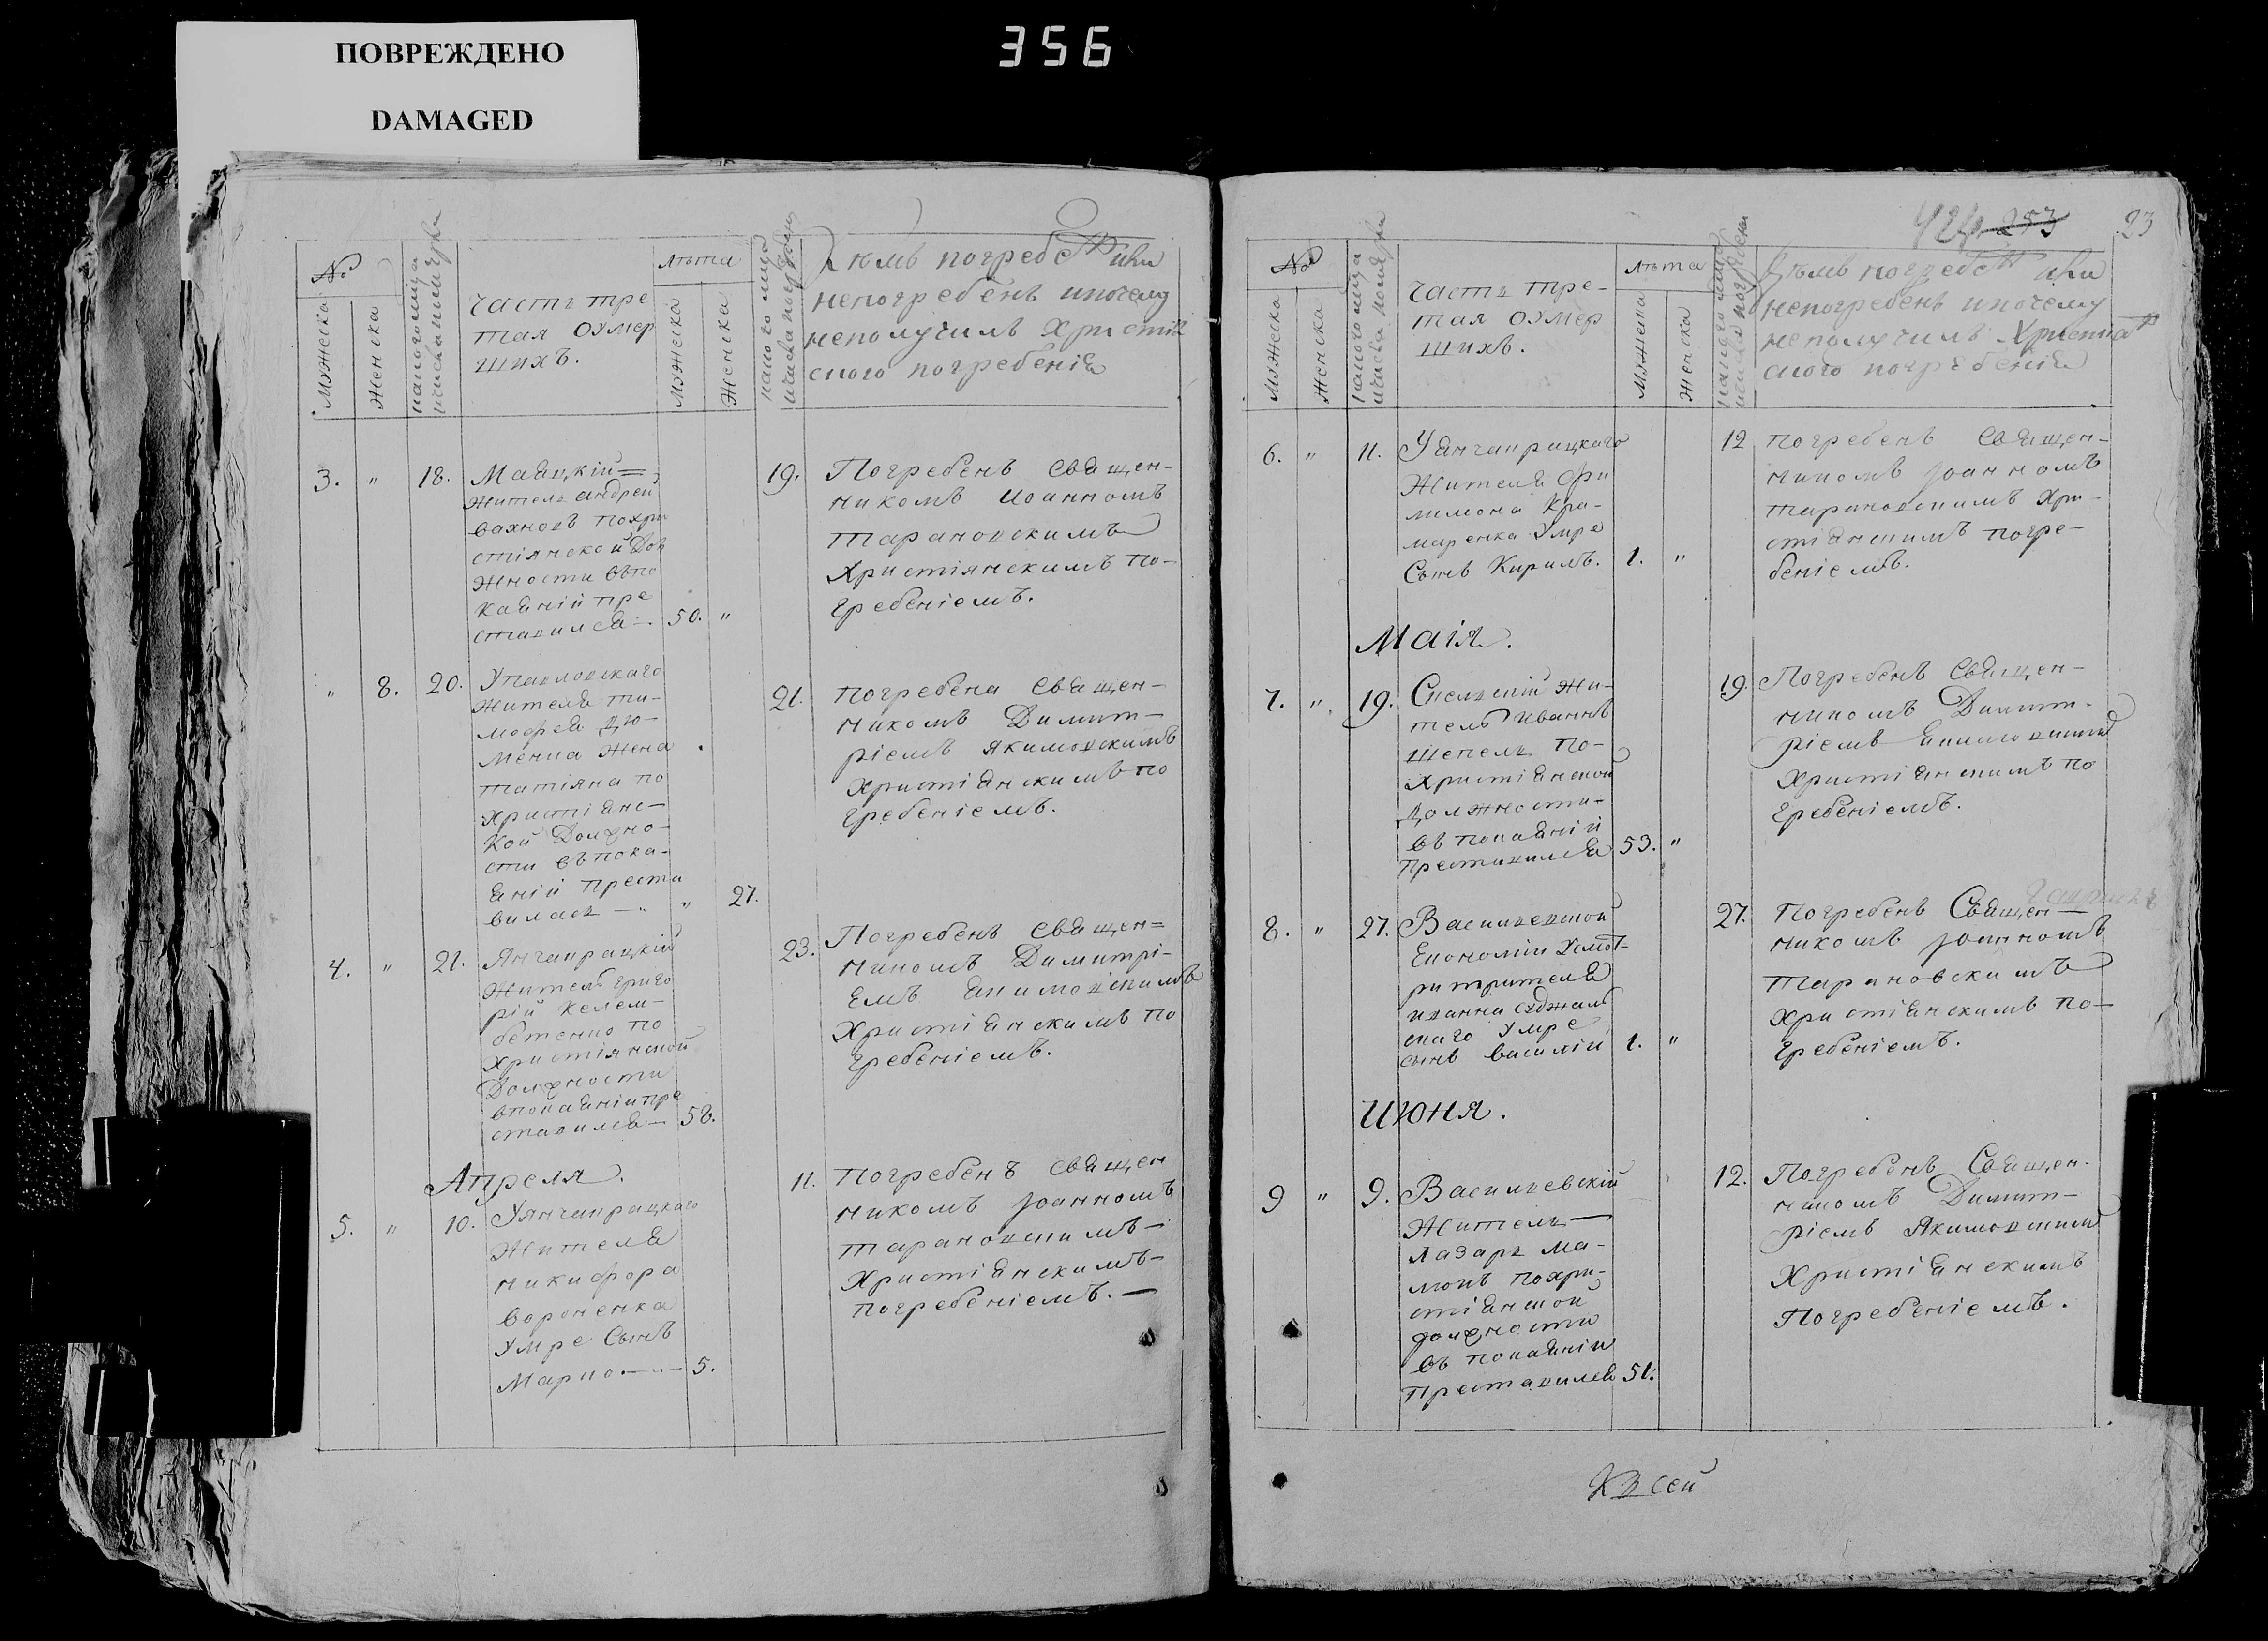 ПОВРЕЖДЕНО
DAMAGED
356
№
Мужеска
Женска
Часть тре
тая оумер
шихъ.
Лѣта
Мужеска
Женска
Кемъ погребе или
непогребенъ ипочему
неполучилъ Христіа
ского погребенія
3. " 18.
Маяцкій=
Житель андрей
вахновъ похри
стіянской Дол
жности впо
каяній пре
ставился — 50. "
19.
Погребенъ Священ-
никомъ Иоанномъ
Тарановскимъ
Христіянскимъ по-
гребеніемъ.
" 8. 20.
Упавловскаго
Жителя ти-
мофея Дю-
Жена
татіяна по
христіянс-
кой Должно-
сти въпока-
яній преста
вилась — " " 27.
21.
погребена Священ-
никомъ Димит-
ріемъ якимовскимъ
Христіянскимъ по
гребеніемъ.
4. " 21.
Янчакрацкій
Житель григо
рій Келем-
бетенко по
Христіянской
Должности
впокаяніи пре
ставился — 58.
23.
Погребенъ Священ=
никомъ Димитрі-
емъ якимовскимъ
Христіянскимъ по
гребеніемъ.
Апреля.
5. " 10.
Уянчакрацкаго
Жителя
никифора
вороненка
умре Сынъ
Марко — " — 5.
11.
Погребенъ Священ
никомъ Іоанномъ
тарановскимъ —
Христіянскимъ —
погребеніемъ. —
424 253 23
№
Мужеска
Женска
Часть тре-
тая оумер
шихъ.
Лѣта
Мужеска
Женска
Кемъ погребе или
непогребенъ ипочему
неполучилъ Христиа
ского погребенія
6. " 11.
Уянчакрацкаго
Жителя Фи
лимона Кра-
маренка Умре
Сынъ Кирилъ. 1. "
12
погребенъ Священ-
никомъ Іоанномъ
тарановскимъ Хри-
стіянскимъ погре-
беніемъ.
Маія.
7. " 19.
Скельский Жи-
тель иваннъ
Щепель по-
христіянской
должности-
въ покаяній
Преставился 53. "
19.
Погребенъ Священ-
никомъ Димит-
ріемъ якимовским
Христіянскимъ по
гребеніемъ.
8. " 27.
Васильевской
Економіи
иванна
скаго Умре
сынъ василій 1. "
27.
Погребенъ Священ-
никомъ Іоанномъ
Тарановскимъ
Христіянскимъ по-
гребеніемъ.
Июня.
9 " 9.
Васильевскій
Житель —
Лазарь Ма-
похри-
стіянской
должности
въ покаяніи
Преставился 51.
12.
Погребенъ Священ-
никомъ Димит-
ріемъ Якимовским
Христіянскимъ
Погребеніемъ.
Къ сей